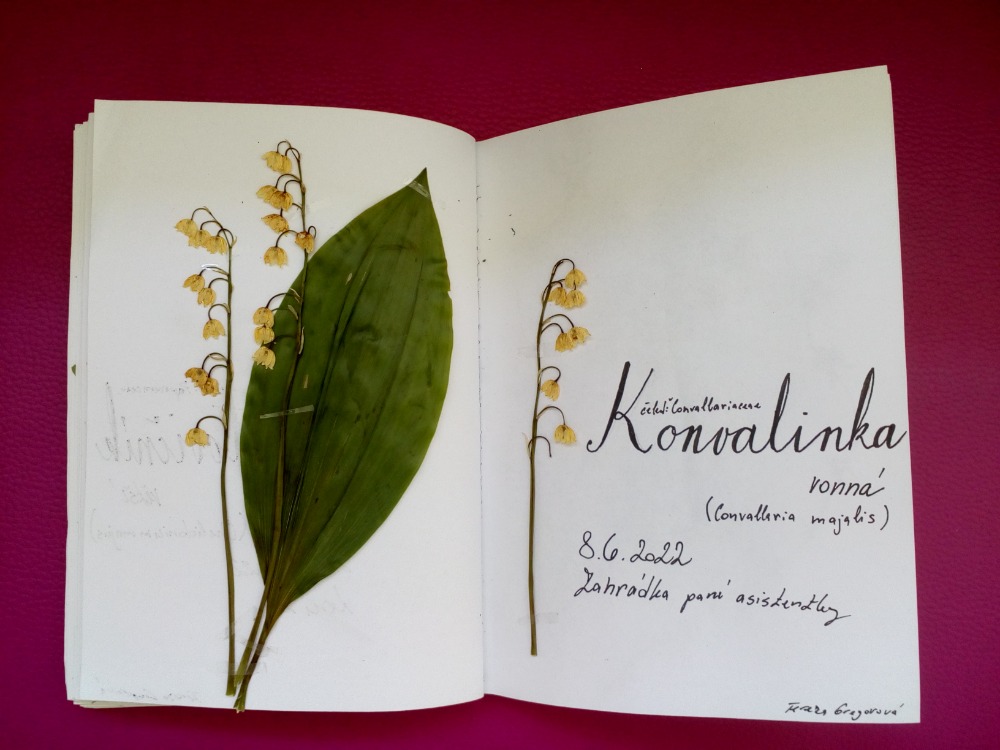 čeleď: Convallariaceae
Konvalinka
vonná
(Convallaria majalis)
8.6.2022
Zahrádka paní asistentky
Tereza Gregorová